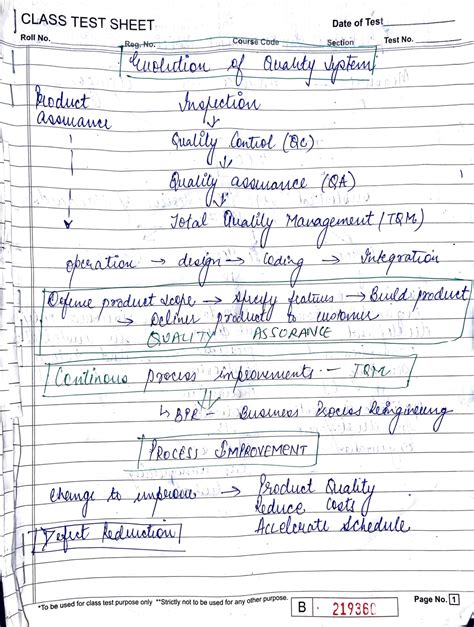 CLASS TEST SHEET
Date of Test
Roll No.
Reg. No.
Course Code
Section
Test No.
Evolution of Quality System
Product Inspection
assurance
Quality Control (QC)
Quality assurance (QA)
Total Quality Management (TQM)
operation → design → Coding → Integration
Define product scope → specify features → Build product
→ Deliver product to customer
QUALITY ASSORANCE
Continous process improvements - TQM
↳ BPR - Business Process Reingineering
PROCESS IMPROVEMENT
change to improve → Product Quality
Reduce Costs
Accelerate Schedule
Defect Reduction
*To be used for class test purpose only **Strictly not to be used for any other purpose.
B
219360
Page No. 1